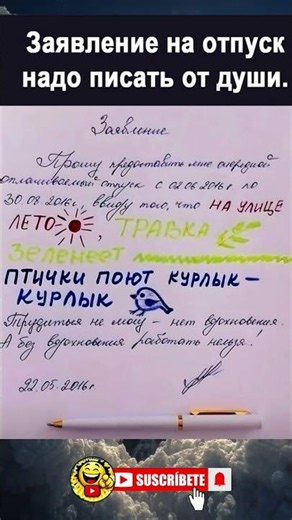 Заявление на отпуск
надо писать от души.
Заявление
Прошу предоставить мне очередной
оплачиваемый отпуск с 02.06.2016г по
30.08.2016г, ввиду того, что НА УЛИЦЕ
ЛЕТО, ТРАВКА
Зеленеет
ПТИЧКИ ПОЮТ КУРЛЫК-
КУРЛЫК
Трудиться не могу - нет вдохновения.
А без вдохновения работать нельзя!
22.05.2016г
SUSCRÍBETE